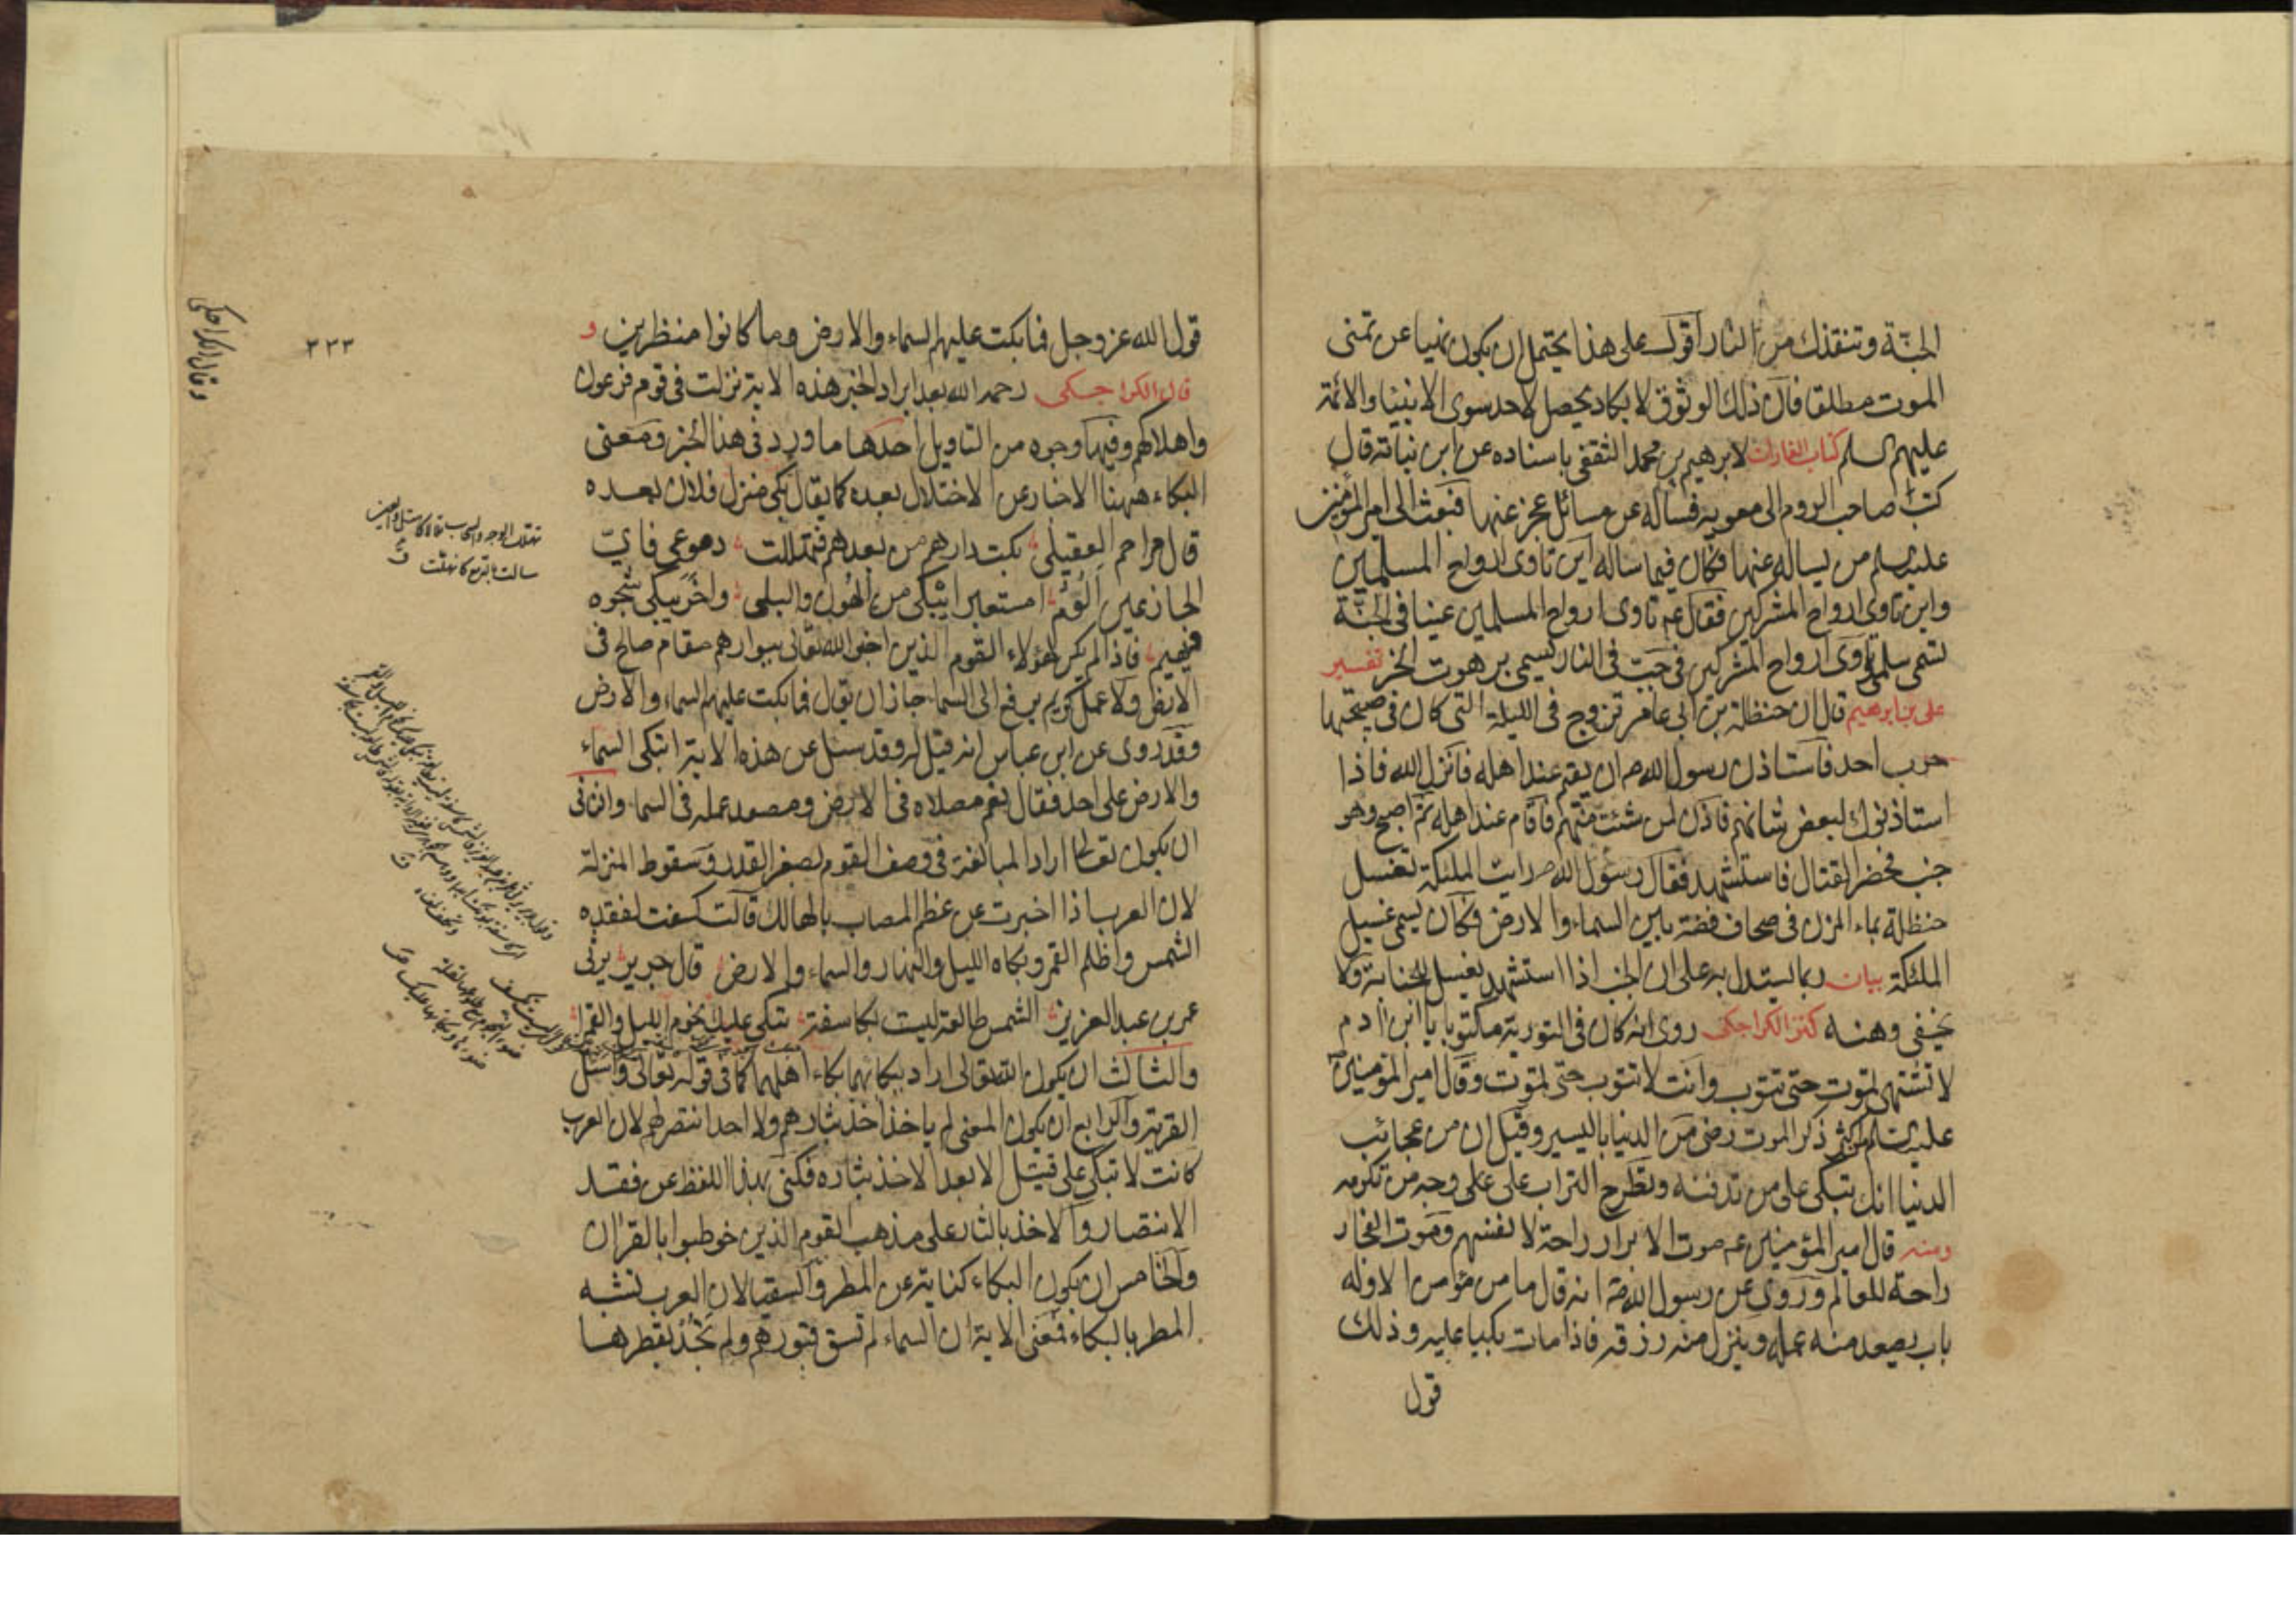 الجنّة وتنقذك من النار اقول على هذا يحتمل ان يكون نهيا عن تمنى
الموت مطلقا فان ذلك الوثوق لا يكاد يحصل لاحد سوى الانبياء والائمة
عليهم السلم كتاب الغارات لابرهيم بن محمد الثقفي باسناده عن ابن نباتة قال
كتب صاحب الروم الى معوية فساله عن مسائل عجز عنها فبعث الى امير المؤمنين
عليه السلم من يساله عنها فكان فيما ساله اين تاوى ارواح المسلمين
واين تاوى ارواح المشركين فقال ع تاوى ارواح المسلمين عينا في الجنة
تسمى سلمى وتاوى ارواح المشركين في جب في النار تسمى برهوت الخبر تفسير
على بن ابرهيم قال ان حنظلة بن ابي عامر تزوج في الليلة التي كان في صبيحتها
حرب احد فاستاذن رسول الله ص ان يقيم عند اهله فانزل الله فاذا
استاذنوك لبعض شانهم فاذن لمن شئت منهم فاقام عند اهله ثم اصبح وهو
جنب فحضر القتال فاستشهد فقال رسول الله ص رايت الملئكة تغسل
حنظلة بماء المزن في صحاف فضة بين السماء والارض فكان يسمى غسيل
الملئكة بيان ربما يستدل به على ان الجنب اذا استشهد يغسل للجنابة ولا
يخفى وهنه كنز الكراجكى روى انه كان في التورية مكتوبا يا ابن ادم
لا تشتهى تموت حتى تتوب وانت لا تتوب حتى تموت وقال امير المؤمنين
عليه السلم من اكثر ذكر الموت رضى من الدنيا باليسير وقيل ان من عجائب
الدنيا انك تبكى على من تدفنه وتطرح التراب على وجه من تكرمه
ومنه قال امير المؤمنين ع موت الابرار راحة لانفسهم وموت الفجار
راحة للعالم وروى عن رسول الله ص انه قال ما من مؤمن الا وله
باب يصعد منه عمله وينزل منه رزقه فاذا مات بكيا عليه وذلك
قول
٢٣٣
قول الله عز وجل فما بكت عليهم السماء والارض وما كانوا منظرين و
قال الكراجكى رحمه الله بعد ايراد الخبر هذه الاية نزلت في قوم فرعون
واهلاكهم وفيها وجوه من التاويل احدها ما ورد في هذا الخبر ومعنى
البكاء ههنا الاخبار عن الاختلال بعده كما يقال بكى منزل فلان بعده
قال مزاحم العقيلى بكت دارهم من بعدهم فتهللت دموعى فاىّ
الجازعين الوم امستعبرا يبكى من الهون والبلى واخر يبكى شجوه
فيهيم فاذا لم يكن لهؤلاء القوم الذين اخبر الله تعالى ببوارهم مقام صالح في
الارض ولا عمل كريم يرفع الى السماء جاز ان يقول فما بكت عليهم السماء والارض
وقد روى عن ابن عباس انه قيل له وقد سئل عن هذه الاية اتبكى السماء
والارض على احد فقال نعم مصلاه في الارض ومصعد عمله في السماء والثانى
ان يكون تعالى اراد المبالغة في وصف القوم بصغر القدر وسقوط المنزلة
لان العرب اذا اخبرت عن عظم المصاب بالهالك قالت كسفت لفقده
الشمس واظلم القمر وبكاه الليل والنهار والسماء والارض قال جرير يرثى
عمر بن عبد العزيز الشمس طالعة ليست بكاسفة تبكى عليك نجوم الليل والقمرا
والثالث ان يكون الله تعالى اراد ببكائهما بكاء اهلهما كما في قوله تعالى واسئل
القرية والرابع ان يكون المعنى لم ياخذ اخذ بثارهم ولا احد انتصر لهم لان العرب
كانت لا تبكى على قتيل الا بعد الاخذ بثاره فكنى بهذا اللفظ عن فقد
الانتصار والاخذ بالثار على مذهب القوم الذين خوطبوا بالقران
والخامس ان يكون البكاء كناية عن المطر والسقيا لان العرب تشبه
المطر بالبكاء فمعنى الاية ان السماء لم تسق قبورهم ولم تجد بقطرها
وقال الكراجكى